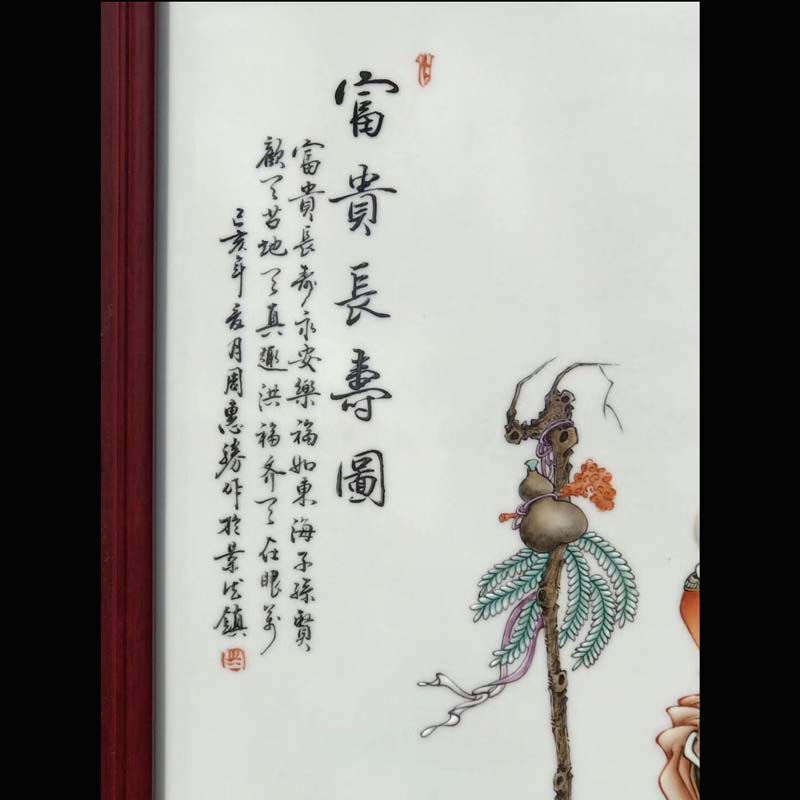 富貴長壽圖
富貴長壽永安樂福如東海子孫賢
歡天喜地天真趣洪福齐天在眼前
己亥年夏月周惠勝作於景德鎮